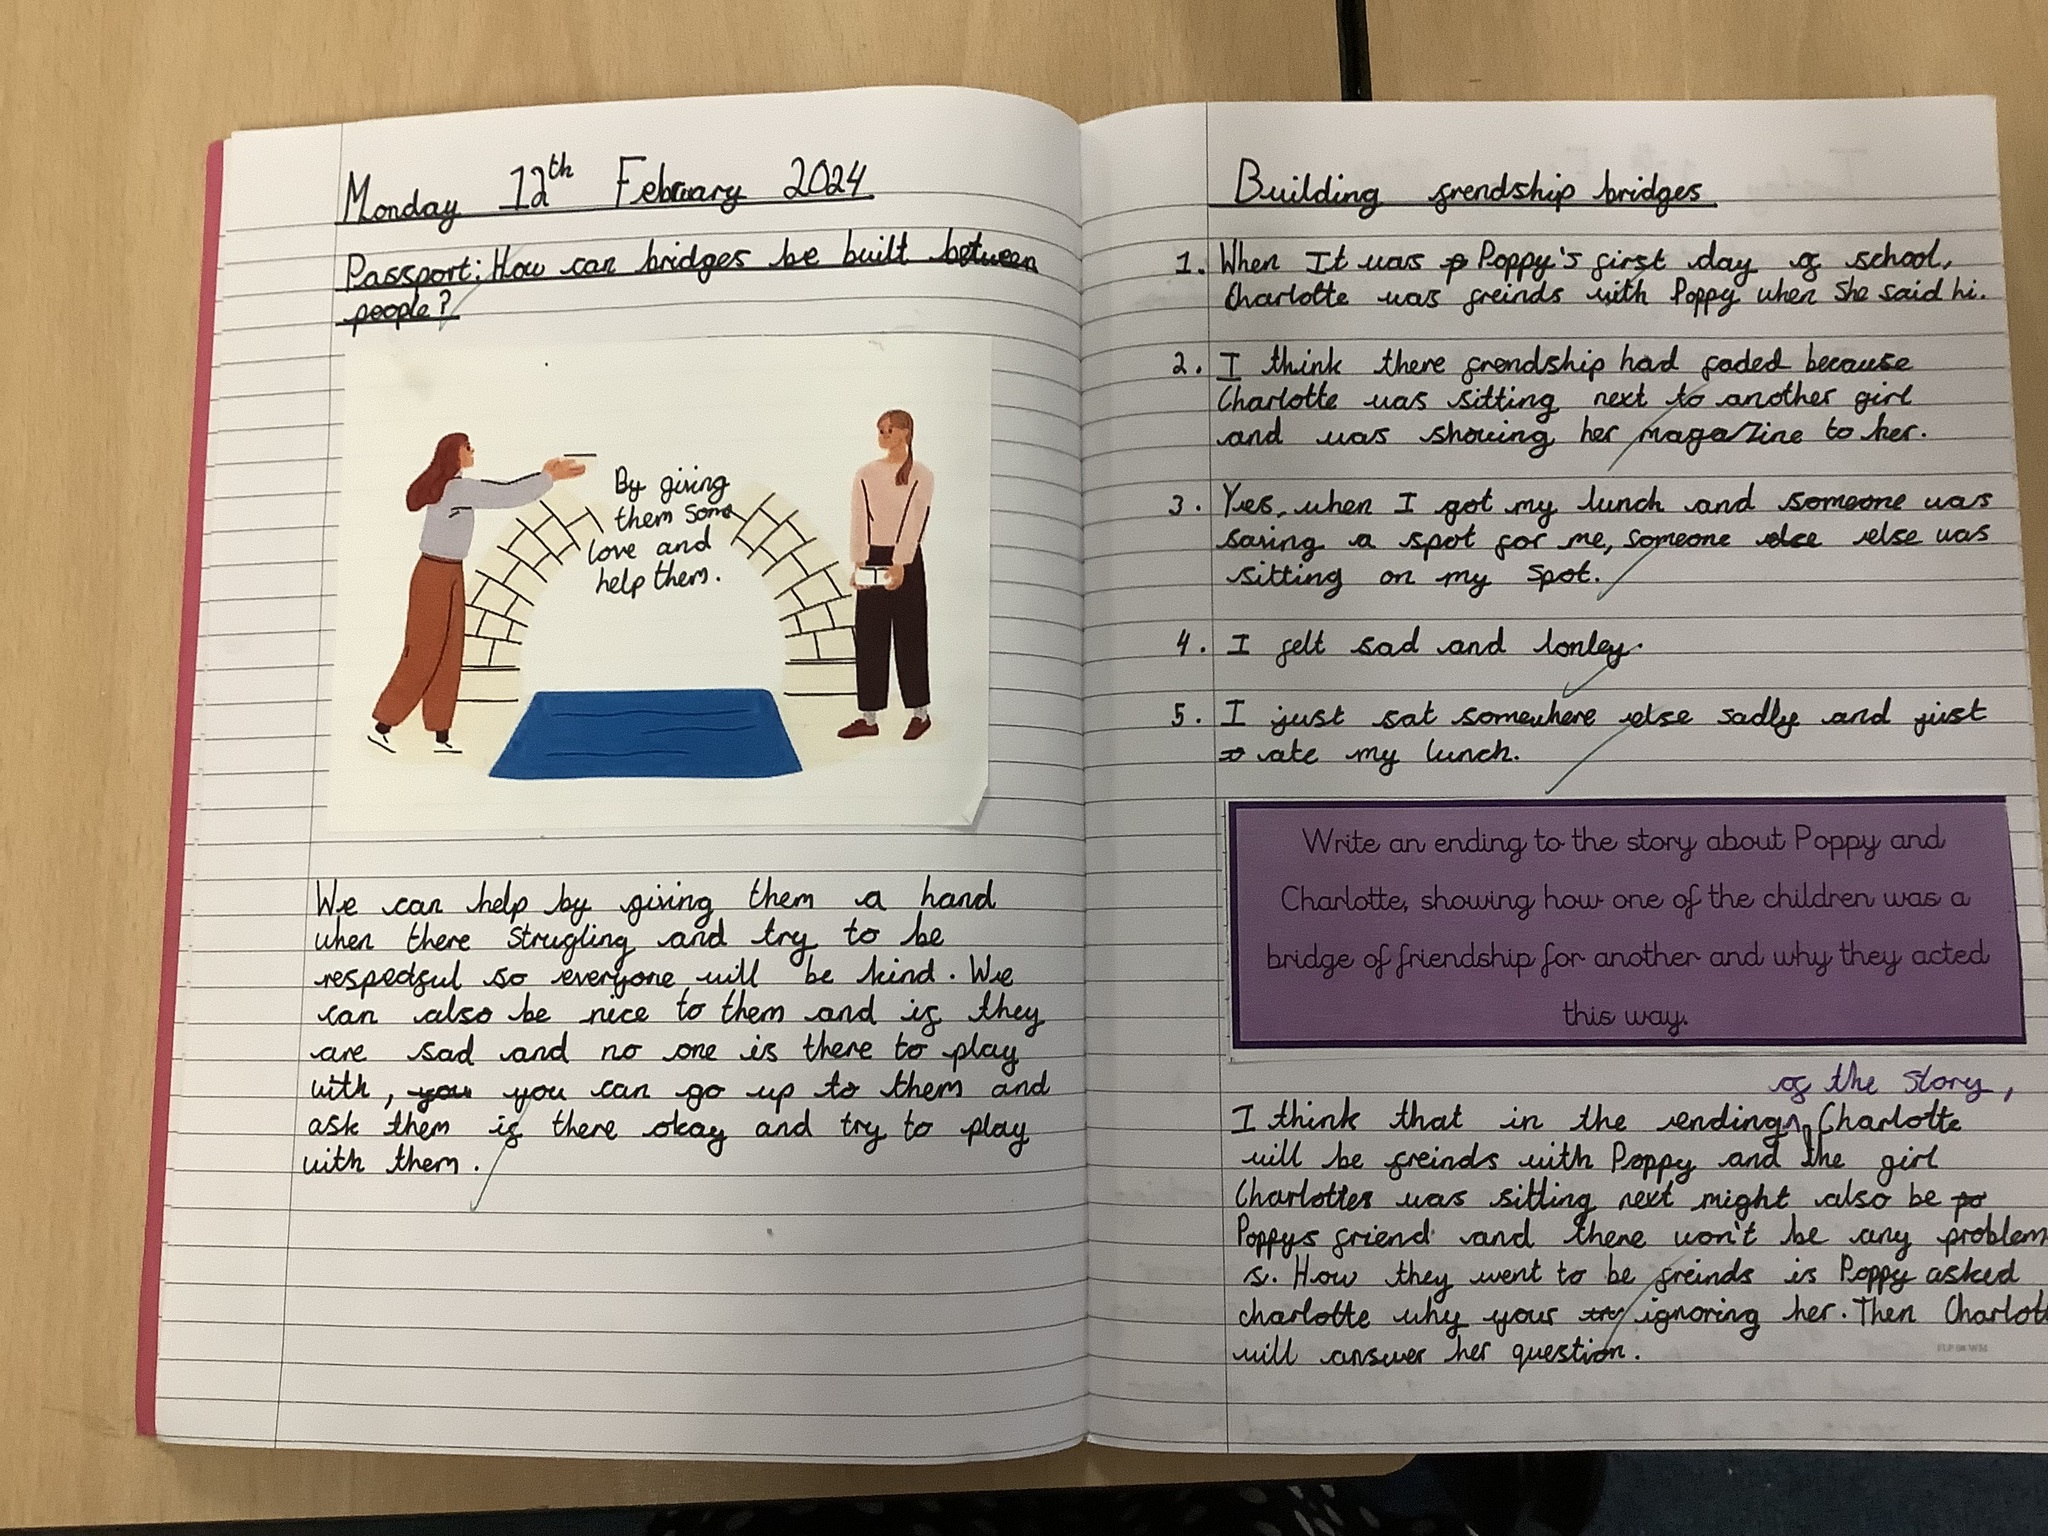 Monday 12th February 2024
Passport: How can bridges be built between
people?
By giving
them some
love and
help them.
We can help by giving them a hand
when there strugling and try to be
respedful so everyone will be kind. We
can also be nice to them and if they
are sad and no one is there to play
with, you you can go up to them and
ask them if there okay and try to play
with them.
Building frendship bridges
1. When It was p Poppy's first day of school,
Charlotte was freinds with Poppy when She said hi.
2. I think there frendship had faded because
Charlotte was sitting next to another girl
and was showing her magazine to her.
3. Yes, when I got my lunch and someone was
saving a spot for me, someone else else was
sitting on my spot.
4. I felt sad and lonley.
5. I just sat somewhere else sadly and just
ate my lunch.
Write an ending to the story about Poppy and
Charlotte, showing how one of the children was a
bridge of friendship for another and why they acted
this way.
of the story,
I think that in the ending Charlotte
will be freinds with Poppy and the girl
Charlottes was sitting next might also be po
Poppys friend and there won't be any problem
s. How they went to be freinds is Poppy asked
charlotte why your try ignoring her. Then Charlott
will answer her question.